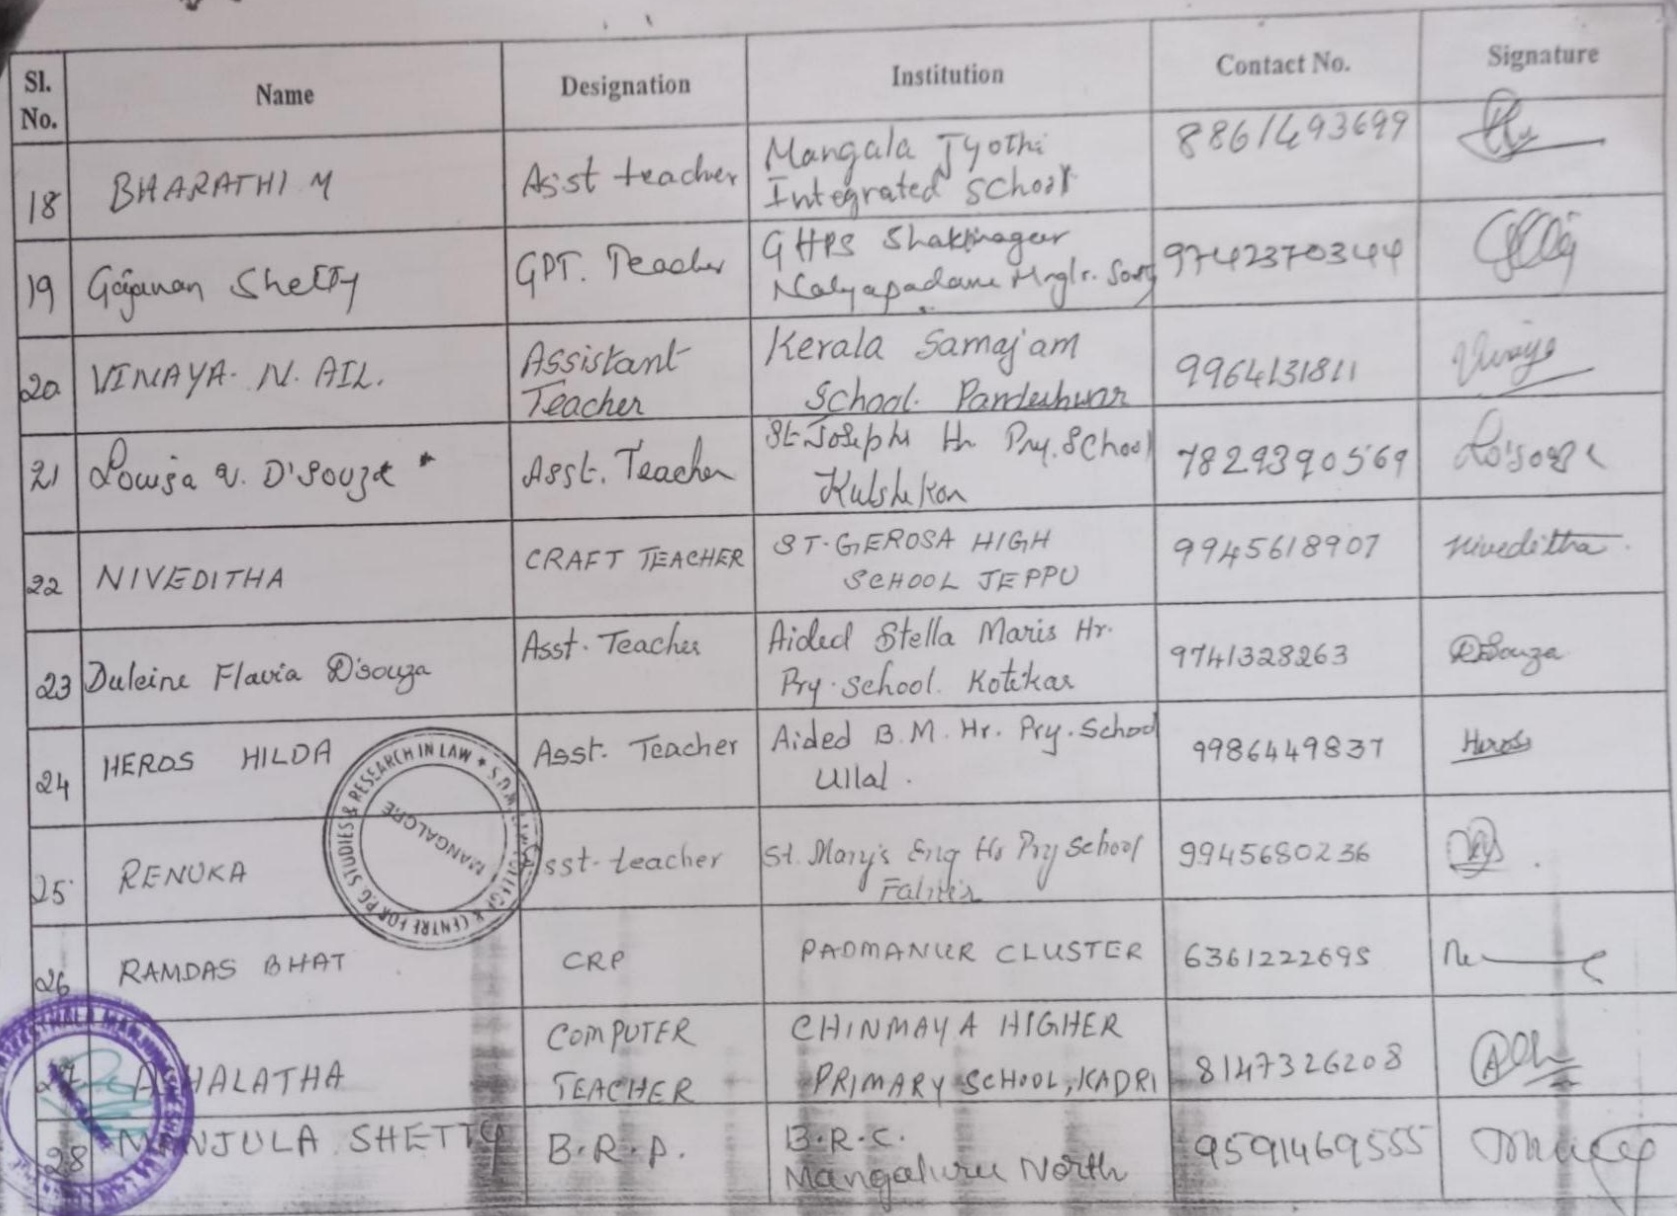 Sl. No. Name Designation Institution Contact No. Signature
18 BHARATHI M Asst teacher Mangala Jyothi Integrated School 8861493699
19 Gajanan Shetty GPT. Teacher GHPS Shakthinagar Nalyapadavu Mnglr. South 9742370344
20 VINAYA. N. AIL. Assistant Teacher Kerala Samajam School. Pandeshwar 9964131811 Vinaya
21 Lowisa V. D'Souza Asst. Teacher St Josephs Hr Pry. School Kulshekar 7829390569
22 NIVEDITHA CRAFT TEACHER ST. GEROSA HIGH SCHOOL JEPPU 9945618907 Niveditha.
23 Dulcine Flavia D'souza Asst. Teacher Aided Stella Maris Hr. Pry. School. Kotekar 9741328263 DSouza
24 HEROS HILDA Asst. Teacher Aided B.M. Hr. Pry. School Ullal. 9986449837 Heros
25 RENUKA Asst. teacher St. Mary's Eng Hr Pry School 9945680236
26 RAMDAS BHAT CRP PADMANUR CLUSTER 6361222695
27 ASHALATHA COMPUTER TEACHER CHINMAYA HIGHER PRIMARY SCHOOL, KADRI 8147326208
28 MANJULA SHETTY B.R.P. B.R.C. Mangaluru North 9591469555
S.D.M. LAW COLLEGE & CENTRE FOR PG STUDIES & RESEARCH IN LAW
MANGALORE